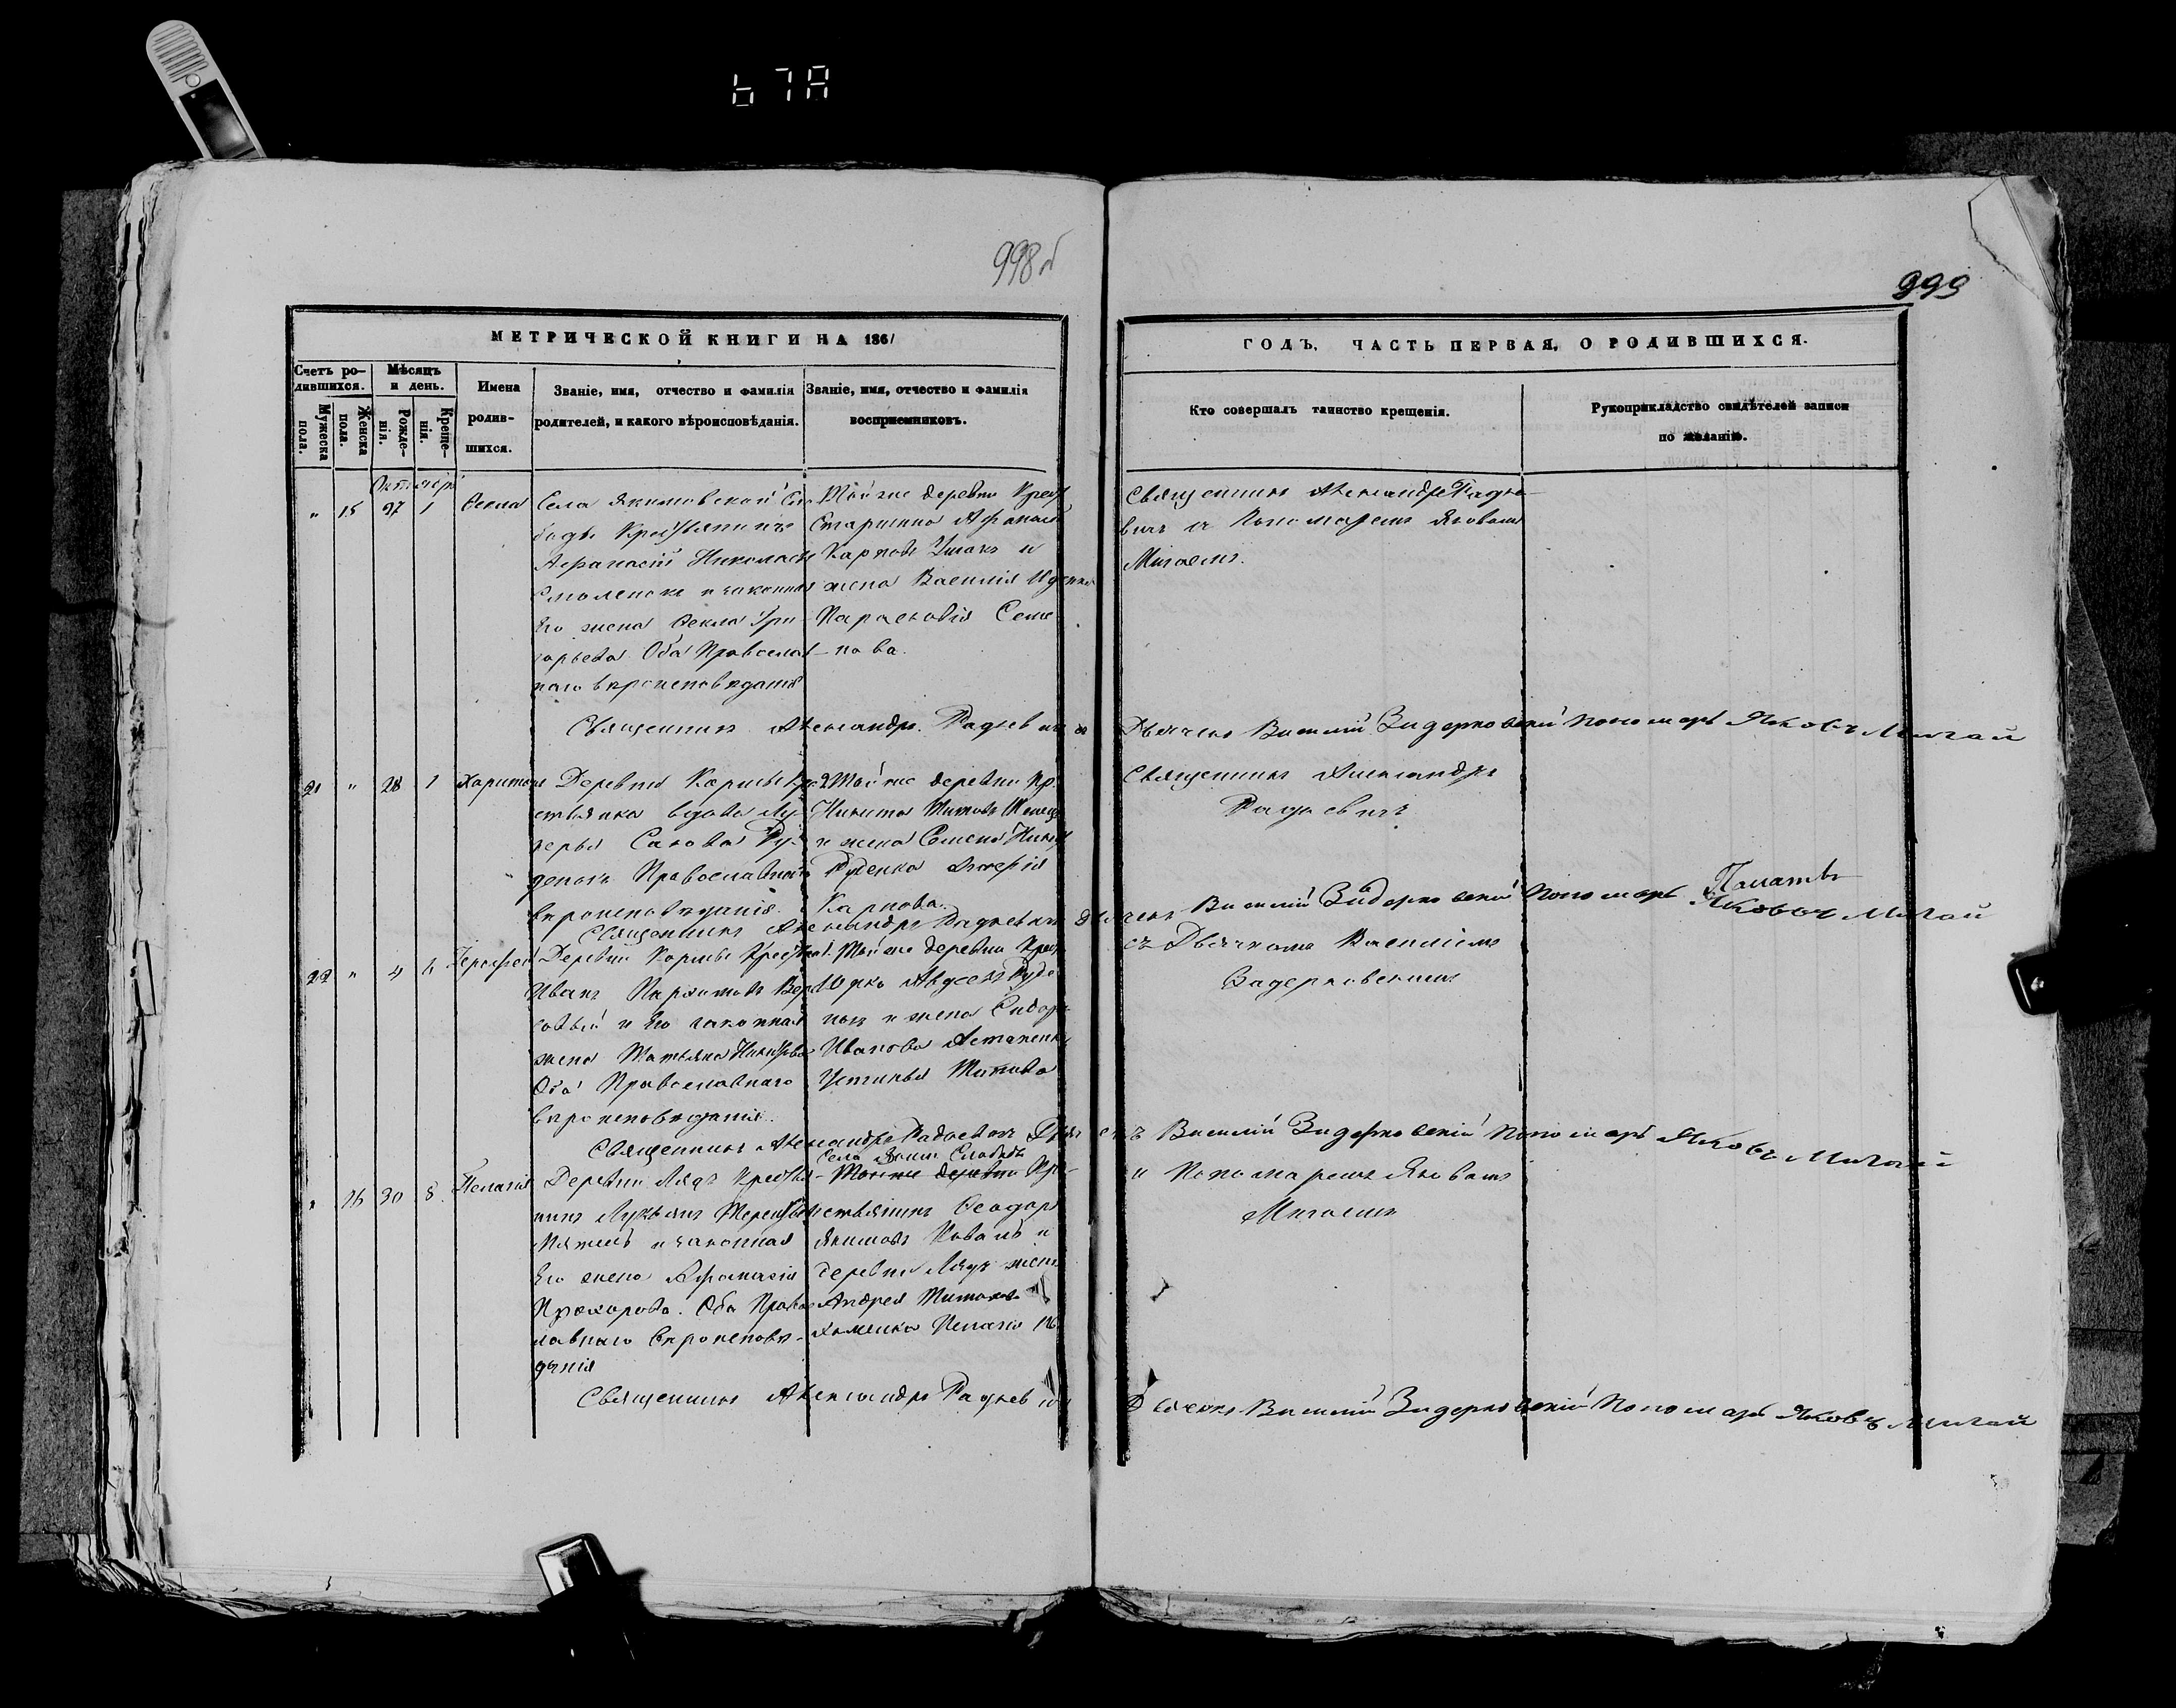 67А
998 об
999
МЕТРИЧЕСКОЙ КНИГИ НА 1861
ГОДЪ, ЧАСТЬ ПЕРВАЯ, О РОДИВШИХСЯ.
Счетъ ро-
дившихся.
Мужеска
пола.
Женска
пола.
Мѣсяцъ
и день.
Рожде-
нія.
Креще-
нія.
Имена
родив-
шихся.
Званіе, имя, отчество и фамилія
родителей, и какого вѣроисповѣданія.
Званіе, имя, отчество и фамилія
воспріемниковъ.
Кто совершалъ таинство крещенія.
Рукоприкладство свидѣтелей записи
по желанію.
Октября
" 15 27 1 Ѳекла
Села Якимовской Сло
боды Крестьянинъ
Афанасій Николаевъ
Смоленскъ и законная
Его жена Ѳекла Гри
горьева Оба Православ
наго вѣроисповѣданія
Той же деревни Крест
Старшина Афанасій
Карповъ Ушакъ и
жена Василія
Парасковія Семе
нова.
Священникъ Александръ Радке
вичъ и Пономаремъ Яковомъ
Мигаемъ.
Священникъ Александръ Радкевичъ Дьячекъ Василій Задерковскій Пономарь Яковъ Мигай
21 " 28 1 Харитонъ
Деревни Кормы Кре
стьянка вдова Лу
керья Савова Ру
денокъ Православнаго
вѣроисповѣданія.
Той же деревни Кр.
Никита Титовъ
и жена Семена
Руденка
Карпова.
Священникъ Александръ
Радкевичъ
Священникъ Александръ Радкевичъ Дьячекъ Василій Задерковскій Пономарь Яковъ Мигай
22 " 4 4 Іерофей
Деревни Кормы Крестьян.
Иванъ Пархомовъ
и Его законная
жена Татьяна
Оба Православнаго
вѣроисповѣданія.
Той же деревни Крест
Юрко Авдеевъ Руде
нокъ и жена Сидора
Иванова Астапенка
Устинья Титова
съ Дьячкомъ Василіемъ
Задерковскимъ
Священникъ Александръ Радкевичъ Дьячекъ Василій Задерковскій Пономарь Яковъ Мигай
" 16 30 8 Пелагія
Деревни Лядъ Крестья
нинъ Лукьянъ Терентьевъ
и законная
Его жена Афанасія
Прохорова. Оба Правос
лавнаго вѣроисповѣ-
данія
Села Яким Слободы
Той же деревни Кре-
стьянинъ Ѳеодоръ
Якимовъ Коваль и
деревни Лядъ жена
Андрея Титова
Хоменка Пелагія
и Пономаремъ Яковомъ
Мигаемъ
Священникъ Александръ Радкевичъ
Дьячекъ Василій Задерковскій Пономарь Яковъ Мигай